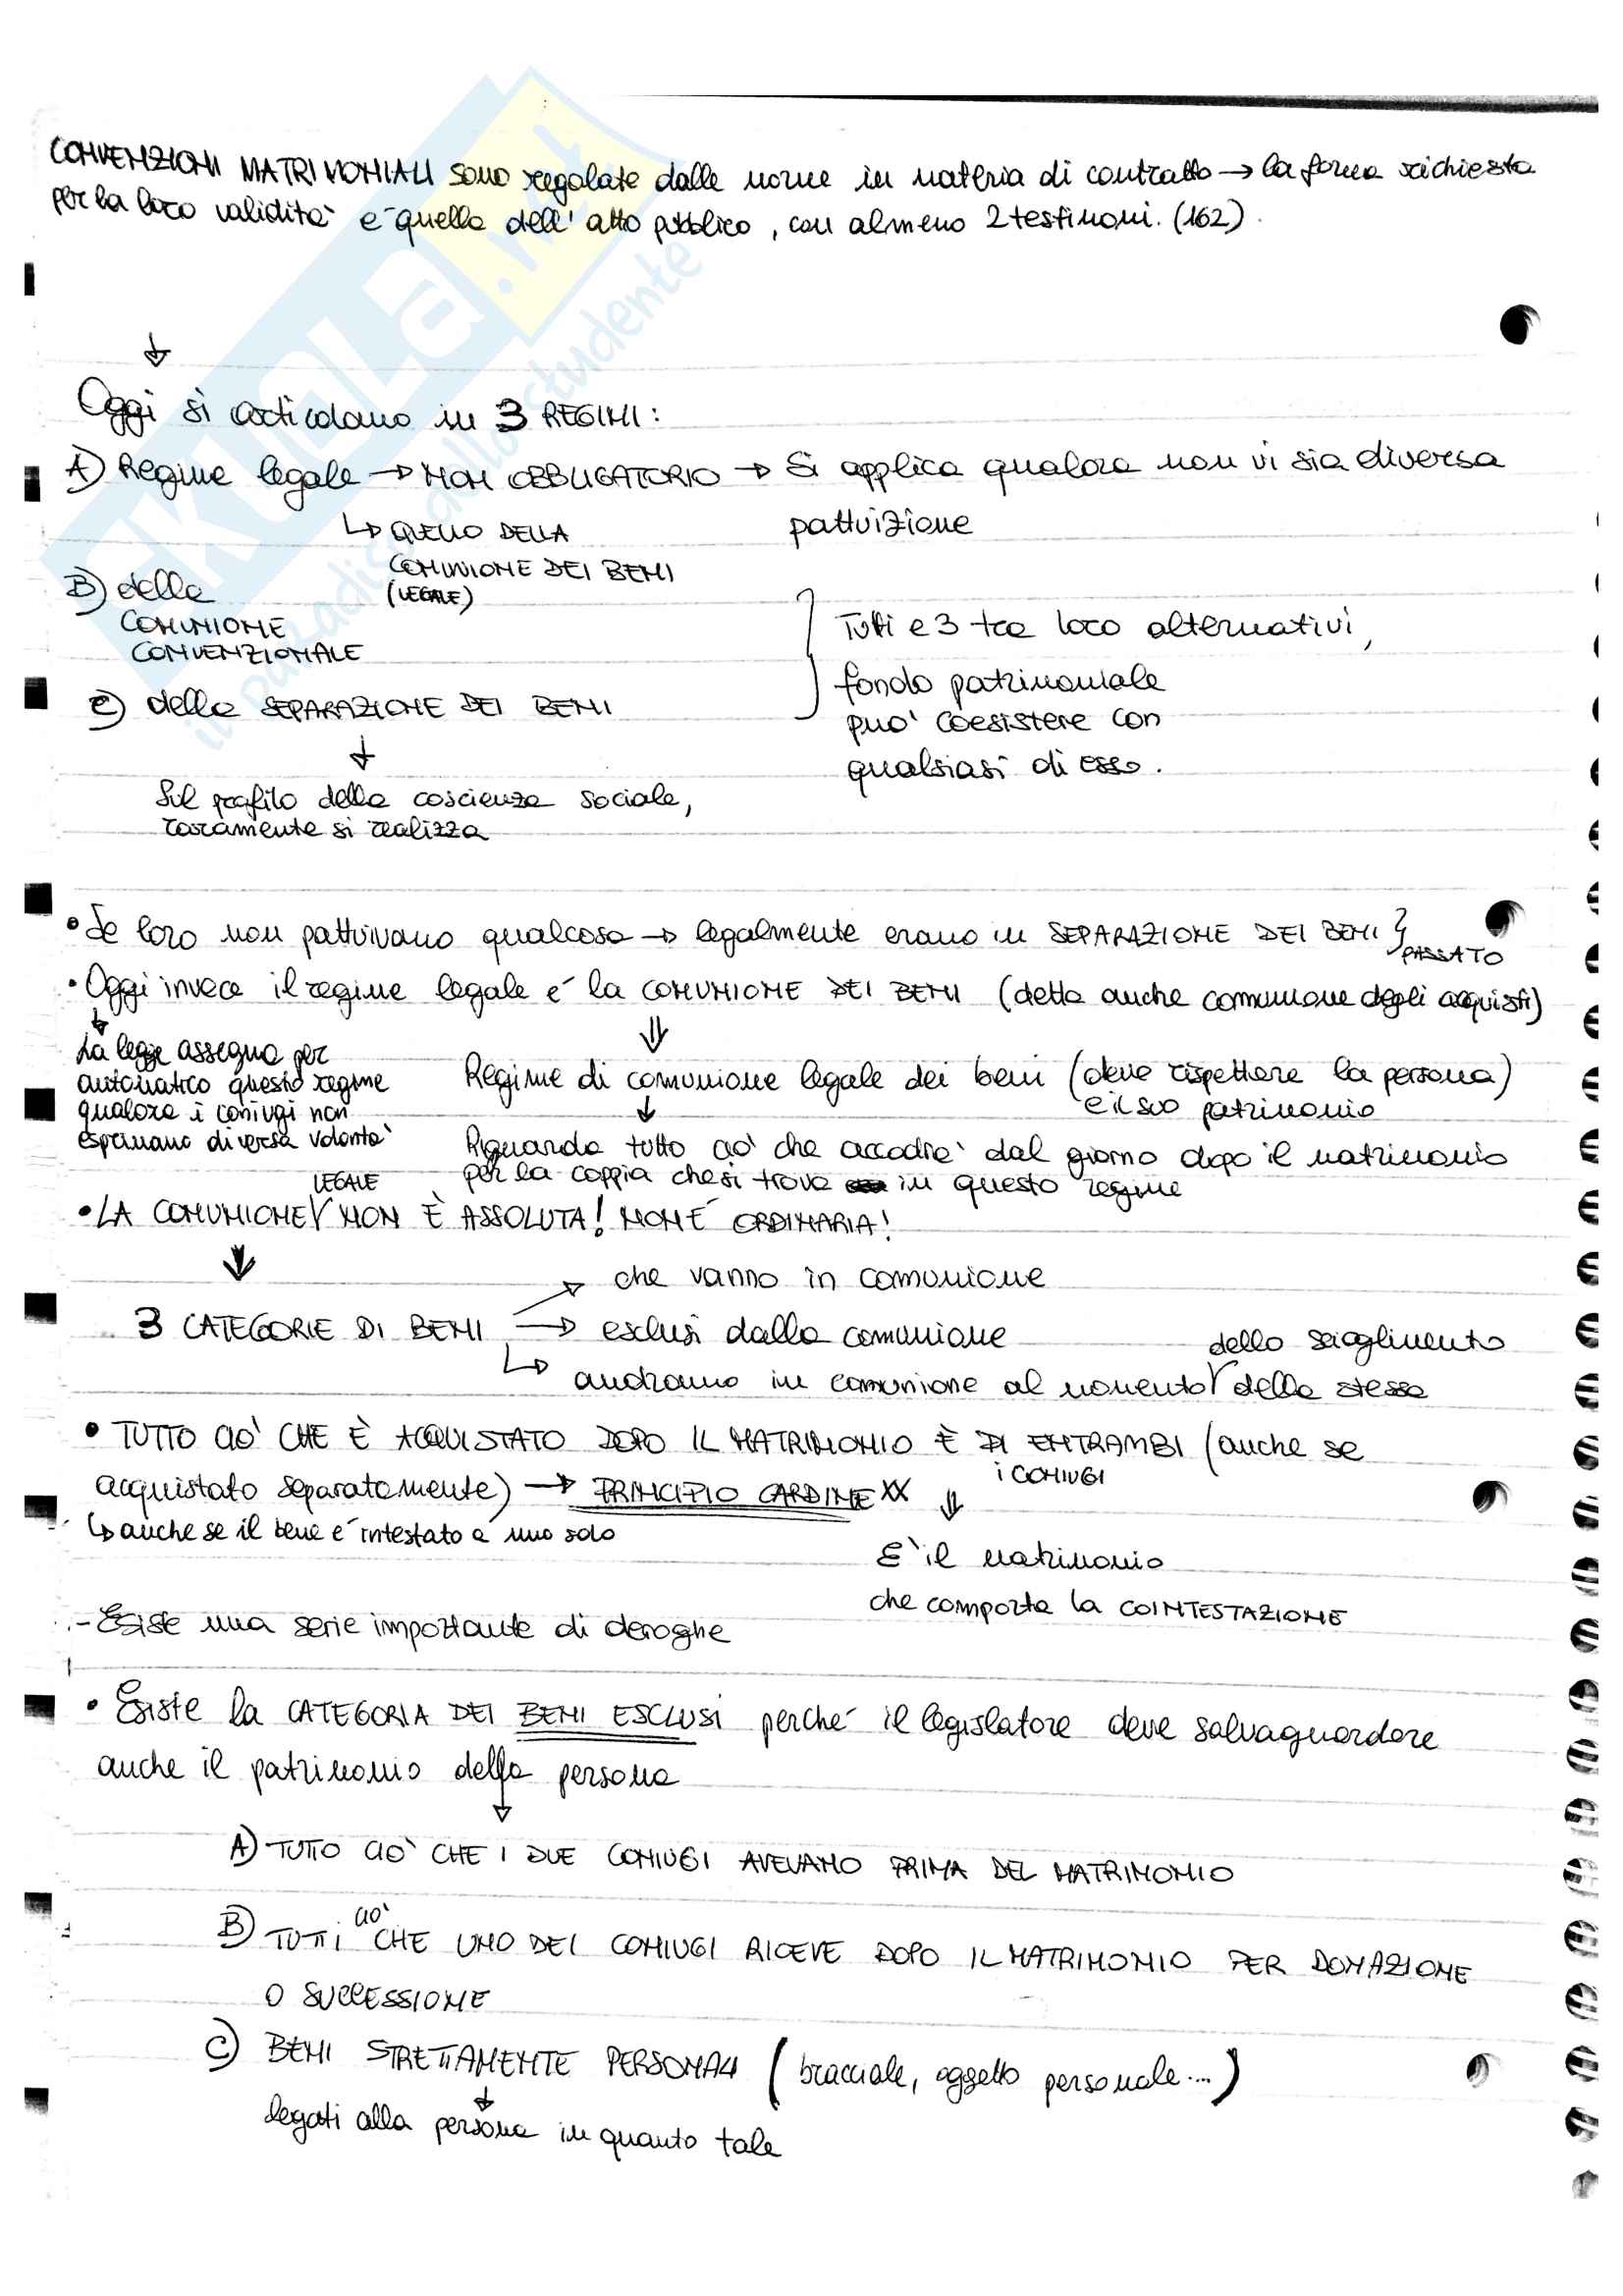 CONVENZIONI MATRIMONIALI sono regolate dalle norme in materia di contratto → la forma richiesta
per la loro validità è quella dell'atto pubblico, con almeno 2 testimoni. (162).
SKUOLA.net
il paradiso dello studente
Oggi si articolano in 3 REGIMI:
A) Regime legale → NON OBBLIGATORIO → Si applica qualora non vi sia diversa
pattuizione
↳ QUELLO DELLA
COMUNIONE DEI BENI
(LEGALE)
B) della
COMUNIONE
CONVENZIONALE
C) della SEPARAZIONE DEI BENI
} Tutti e 3 tra loro alternativi,
fondo patrimoniale
puo' coesistere con
qualsiasi di esso.
↓
Sul profilo della coscienza sociale,
raramente si realizza
• Se loro non pattuivano qualcosa → legalmente erano in SEPARAZIONE DEI BENI } PASSATO
• Oggi invece il regime legale é la COMUNIONE DEI BENI (detta anche comunione degli acquisti)
↓
La legge assegna per
automatico questo regime
qualora i coniugi non
esprimano diversa volontà
⇓
Regime di comunione legale dei beni (deve rispettare la persona)
e il suo patrimonio
↓
Riguarda tutto ciò che accadrà dal giorno dopo il matrimonio
per la coppia che si trova in questo regime
• LA COMUNIONE LEGALE NON È ASSOLUTA! NON É ORDINARIA!
↓
3 CATEGORIE DI BENI
→ che vanno in comunione
→ esclusi dalla comunione
↳ andranno in comunione al momento dello scioglimento della stessa
• TUTTO CIO' CHE È ACQUISTATO DOPO IL MATRIMONIO È DI ENTRAMBI (anche se
i CONIUGI
acquistato separatamente) → PRINCIPIO CARDINE XX
↳ anche se il bene é intestato a uno solo
⇓
E' il matrimonio
che comporta la COINTESTAZIONE
- Esiste una serie importante di deroghe
• Esiste la CATEGORIA DEI BENI ESCLUSI perché il legislatore deve salvaguardare
anche il patrimonio della persona
↓
A) TUTTO CIO' CHE I DUE CONIUGI AVEVANO PRIMA DEL MATRIMONIO
B) TUTTI CIO' CHE UNO DEI CONIUGI RICEVE DOPO IL MATRIMONIO PER DONAZIONE
O SUCCESSIONE
C) BENI STRETTAMENTE PERSONALI (bracciale, oggetto personale...)
↓
legati alla persona in quanto tale